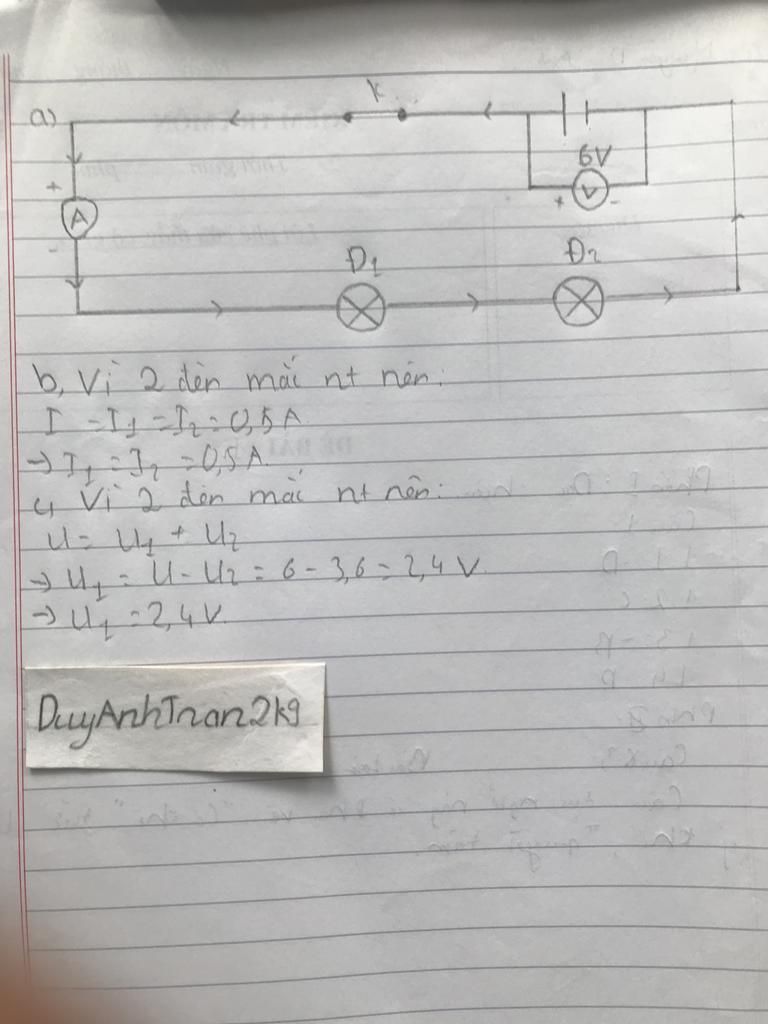 a)
K
6V
+ V -
+
A
-
Đ1
Đ2
b, Vì 2 đèn mắc nt nên:
I = I1 = I2 = 0,5 A.
→ I1 = I2 = 0,5 A.
c, Vì 2 đèn mắc nt nên:
U = U1 + U2
→ U1 = U - U2 = 6 - 3,6 = 2,4 V.
→ U1 = 2,4 V.
DuyAnhTran2k9